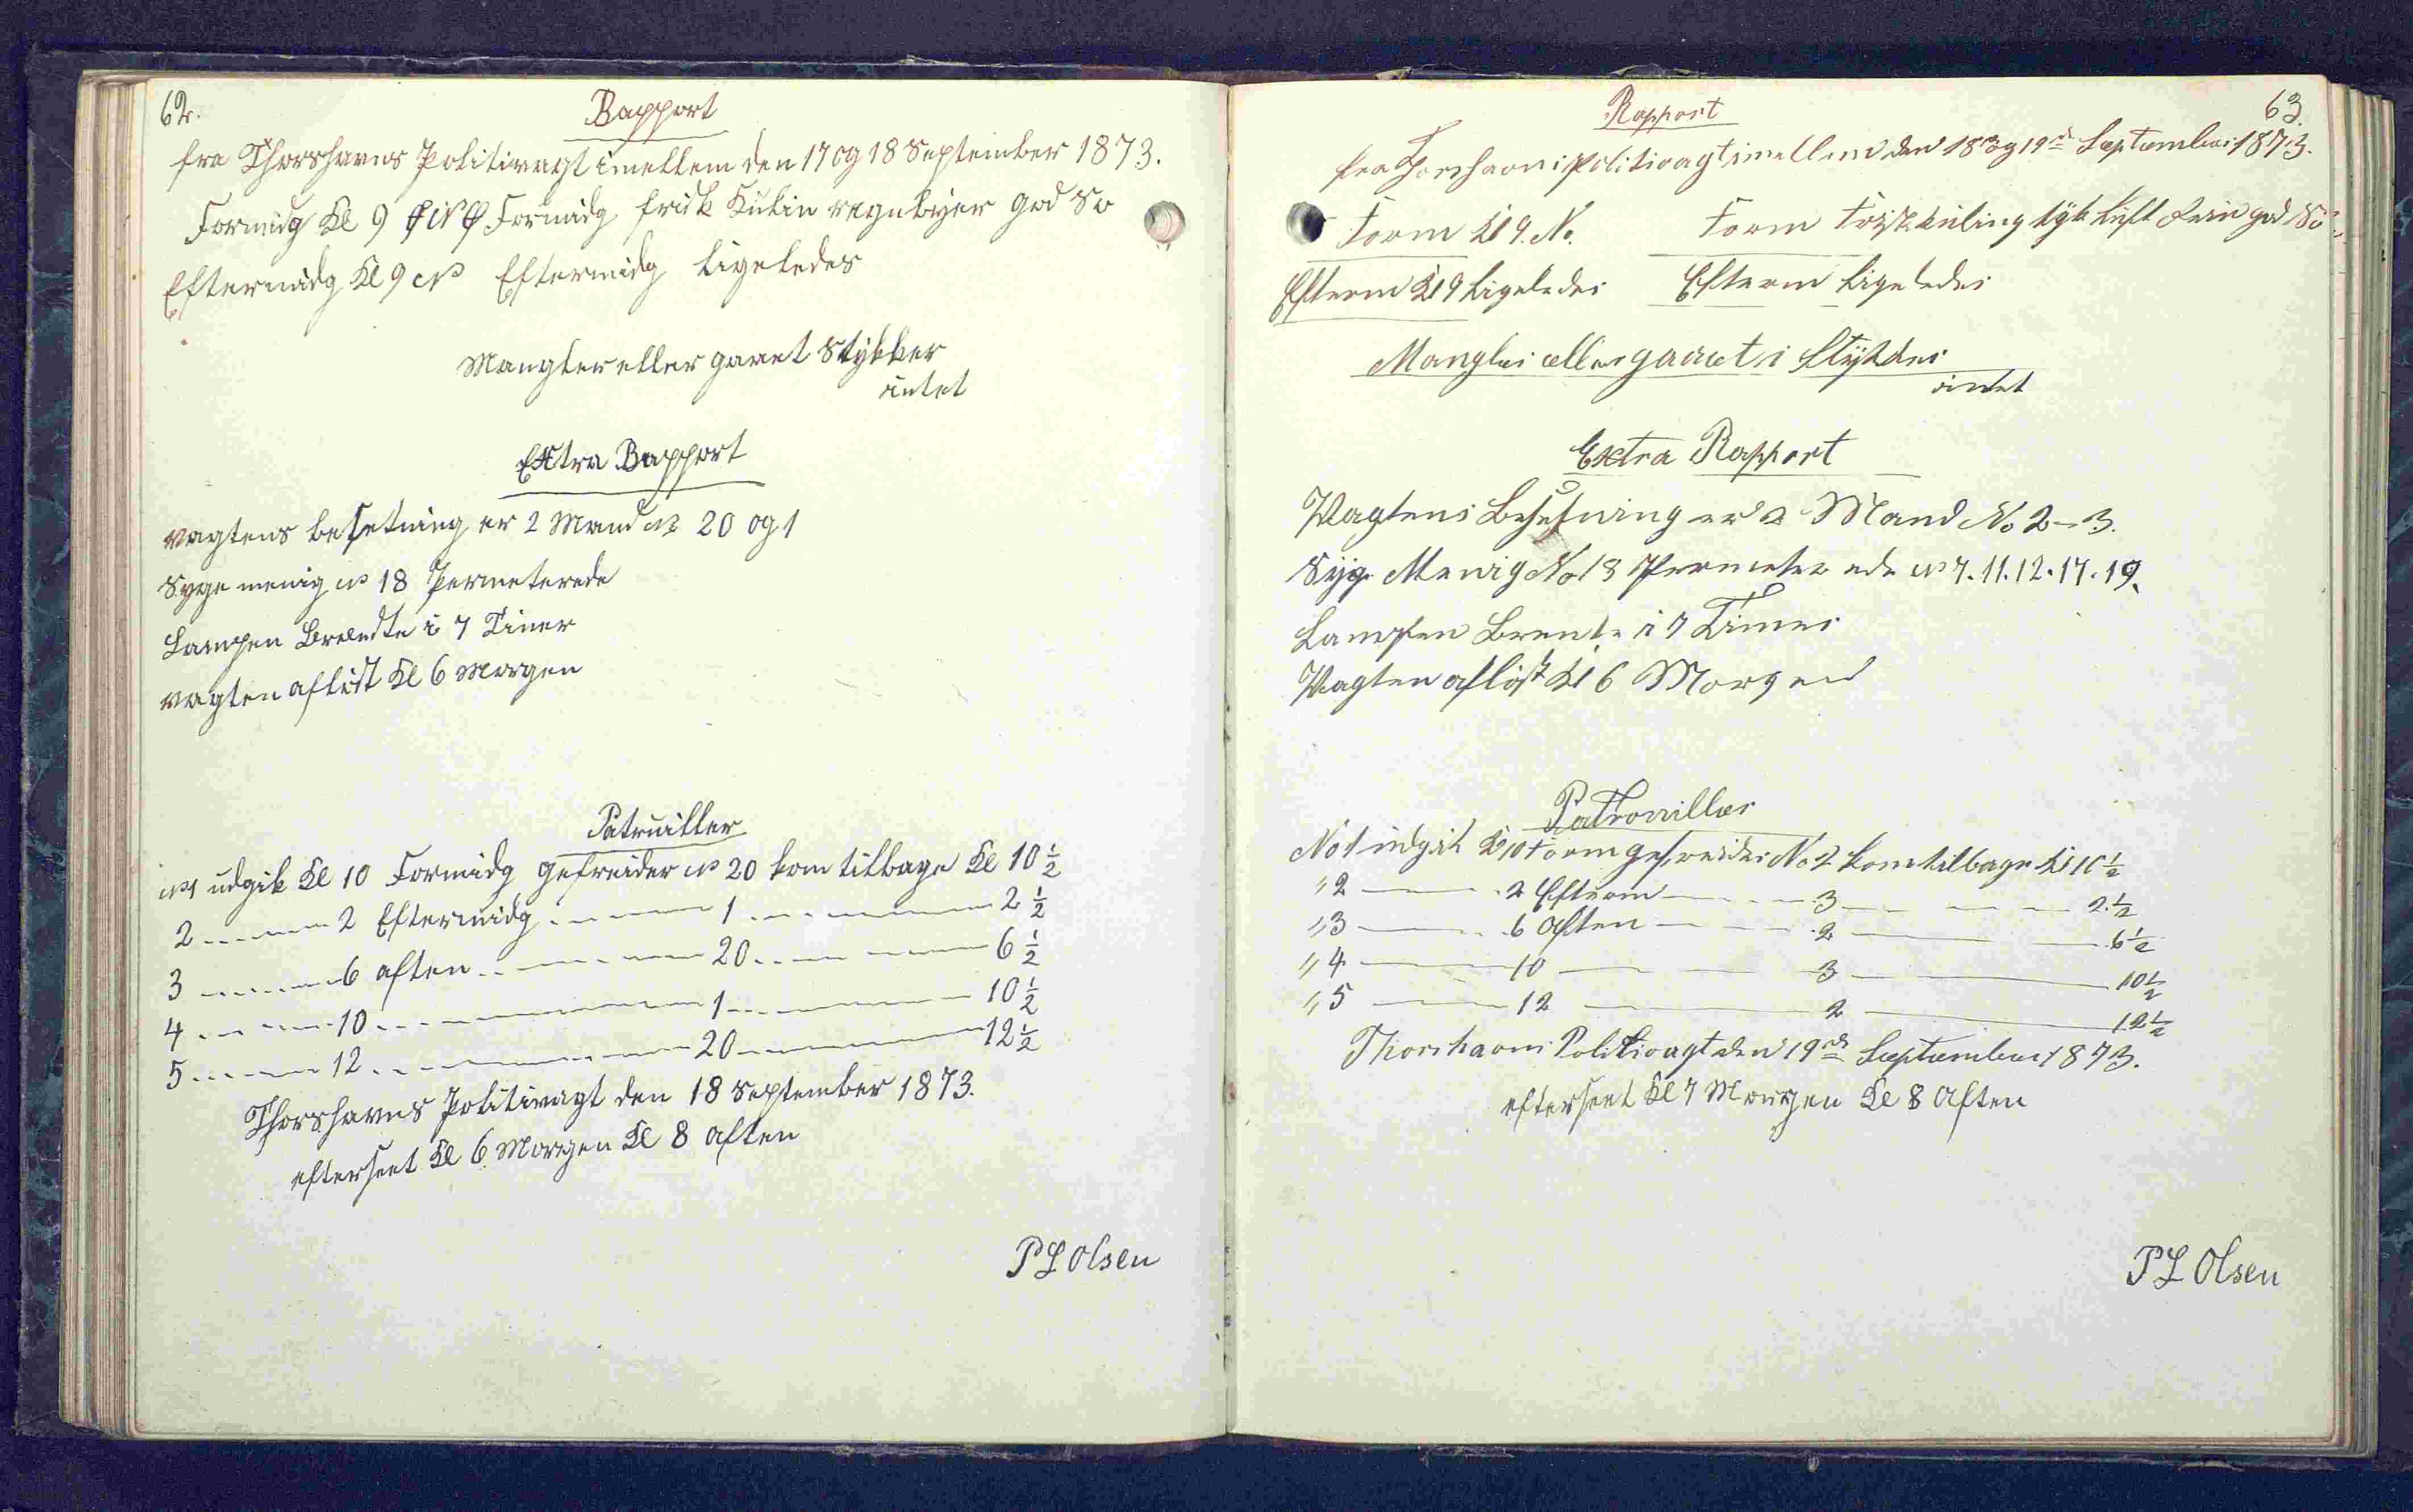 62.
Rapport
fra Thorshavns Politivagt imellem den 17 og 18 September 1873.
Formidg Kl 9 Formidg frisk Kulin regnbyer god So
Eftermidg Kl 9 No Eftermidg ligeledes
Mangler eller gaaet Stykker
intet
Extra Rapport
vagtens besetning er 2 Mand No 20 og 1
Syge menig No 18 Permeterede
Lampen Brændte i 7 Timer
vagten afløst Kl 6 Morgen
Patruiller
No 1 udgik Kl 10 Formidg gefreider No 20 kom tilbage Kl 10 1/2
2 — 2 Eftermidg — 1 — 2 1/2
3 — 6 aften — 20 — 6 1/2
4 — 10 — 1 — 10 1/2
5 — 12 — 20 — 12 1/2
Thorshavns Politivagt den 18 September 1873.
efterseet Kl 6 Morgen Kl 8 aften
P L Olsen
63.
Rapport
fra Torshavns Politivagt imellem den 18 og 19d September 1873.
Form Kl 9. No. Form Frisk kuling tyk luft god Sö
Efterm Kl 9 Ligeledes Efterm Ligeledes
Mangler eller gaaet i Stykker
intet
Extra Rapport
Vagtens Besetning er 2 Mand No 2-3.
Syge Menig No 18 Permeterede No 7. 11. 12. 17. 19.
Lampen Brente i 7 Timer
Vagten aflöst Kl 6 Morgen
Patrouiller
No 1 udgik Kl 10 Form gefreider No 2 kom tilbage Kl 10 1/2
" 2 — 2 Efterm — 3 — 2 1/2
" 3 — 6 Aften — 2 — 6 1/2
" 4 — 10 — 3 — 10 1/2
" 5 — 12 — 2 — 12 1/2
Thorshavns Politivagt den 19d September 1873.
efterseet Kl 7 Morgen Kl 8 Aften
P L Olsen